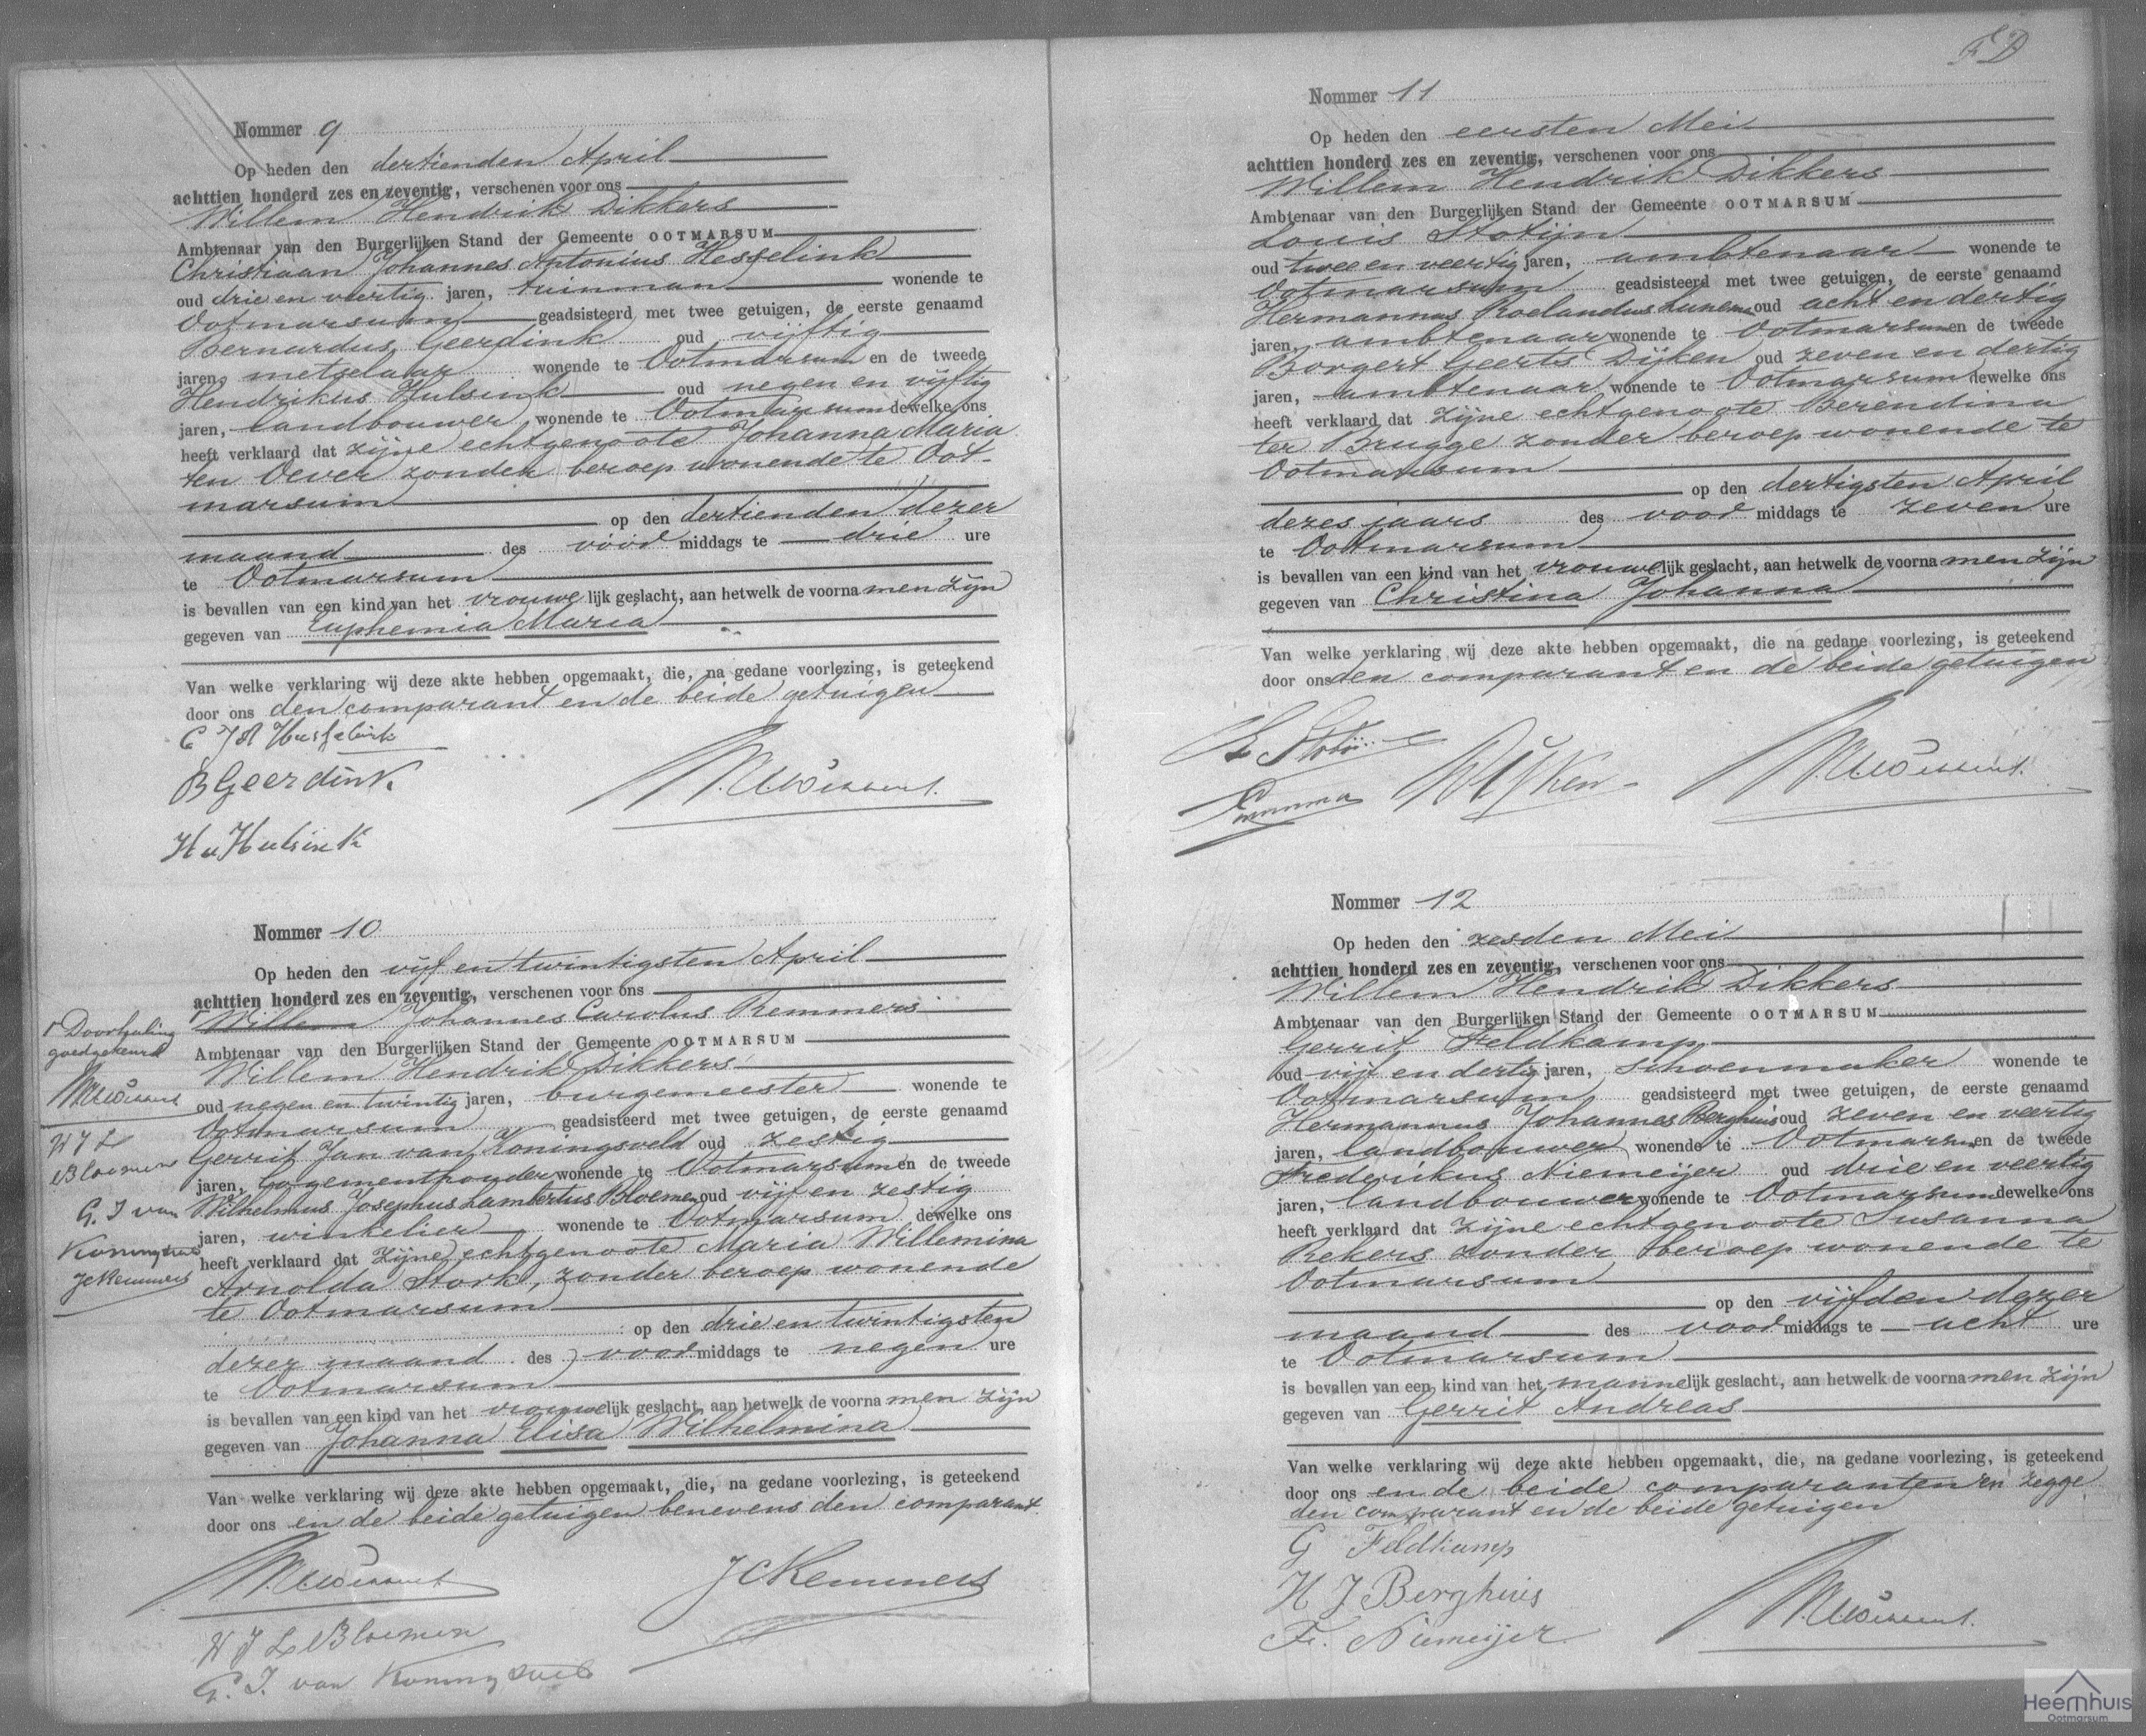 Nommer 9
Op heden den dertienden April
achttien honderd zes en zeventig, verschenen voor ons
Willem Hendrik Dikkers
Ambtenaar van den Burgerlijken Stand der Gemeente OOTMARSUM
Christiaan Johannes Antonius Hesselink
oud drie en veertig jaren, tuinman wonende te
Ootmarsum geadsisteerd met twee getuigen, de eerste genaamd
Bernardus Geerdink oud vijftig
jaren, metselaar wonende te Ootmarsum en de tweede
Hendrikus Hulsink oud negen en vijftig
jaren, landbouwer wonende te Ootmarsum dewelke ons
heeft verklaard dat zijne echtgenoote Johanna Maria
ten Oever zonder beroep wonende te Oot-
marsum
op den dertienden dezer
maand des voor middags te drie ure
te Ootmarsum
is bevallen van een kind van het vrouwe lijk geslacht, aan hetwelk de voorna men zijn
gegeven van Euphemia Maria
Van welke verklaring wij deze akte hebben opgemaakt, die, na gedane voorlezing, is geteekend
door ons den comparant en de beide getuigen
C J A Hesselink
B Geerdink
Hs Hulsink
Nommer 10
Op heden den vijf en twintigsten April
achttien honderd zes en zeventig, verschenen voor ons
Willem Johannes Carolus Remmers
Ambtenaar van den Burgerlijken Stand der Gemeente OOTMARSUM
Willem Hendrik Dikkers
oud negen en twintig jaren, burgemeester wonende te
Ootmarsum geadsisteerd met twee getuigen, de eerste genaamd
Gerrit Jan van Koningsveld oud zestig
jaren, logementhouder wonende te Ootmarsum en de tweede
Wilhelmus Josephus Lambertus Bloemen oud vijf en zestig
jaren, winkelier wonende te Ootmarsum dewelke ons
heeft verklaard dat zijne echtgenoote Maria Willemina
Arnolda Stork, zonder beroep wonende
te Ootmarsum
op den drie en twintigsten
dezer maand des voor middags te negen ure
te Ootmarsum
is bevallen van een kind van het vrouwe lijk geslacht, aan hetwelk de voorna men zijn
gegeven van Johanna Elisa Wilhelmina
Van welke verklaring wij deze akte hebben opgemaakt, die, na gedane voorlezing, is geteekend
door ons en de beide getuigen benevens den comparant
JCRemmers
W J L Bloemen
G. J. van Koningsveld
Doorhaling
goedgekeurd
W J L
Bloemen
G. J van
Koningsveld
JCRemmers
F D
Nommer 11
Op heden den eersten Mei
achttien honderd zes en zeventig, verschenen voor ons
Willem Hendrik Dikkers
Ambtenaar van den Burgerlijken Stand der Gemeente OOTMARSUM
Louis Stotijn
oud twee en veertig jaren, ambtenaar wonende te
Ootmarsum geadsisteerd met twee getuigen, de eerste genaamd
Hermannus Roelandus Lunema oud acht en dertig
jaren, ambtenaar wonende te Ootmarsum en de tweede
Borgert Geerts Dijken oud zeven en dertig
jaren, ambtenaar wonende te Ootmarsum dewelke ons
heeft verklaard dat zijne echtgenoote Berendina
ter Brugge zonder beroep wonende te
Ootmarsum
op den dertigsten April
dezes jaars des voor middags te zeven ure
te Ootmarsum
is bevallen van een kind van het vrouwe lijk geslacht, aan hetwelk de voorna men zijn
gegeven van Christina Johanna
Van welke verklaring wij deze akte hebben opgemaakt, die na gedane voorlezing, is geteekend
door ons den comparant en de beide getuigen
Nommer 12
Op heden den zesden Mei
achttien honderd zes en zeventig, verschenen voor ons
Willem Hendrik Dikkers
Ambtenaar van den Burgerlijken Stand der Gemeente OOTMARSUM
Gerrit Feldkamp
oud vijf en dertig jaren, schoenmaker wonende te
Ootmarsum geadsisteerd met twee getuigen, de eerste genaamd
Hermannus Johannes Berghuis oud zeven en veertig
jaren, landbouwer wonende te Ootmarsum en de tweede
Frederikus Niemeijer oud drie en veertig
jaren, landbouwer wonende te Ootmarsum dewelke ons
heeft verklaard dat zijne echtgenoote Susanna
Rekers zonder beroep wonende te
Ootmarsum
op den vijfden dezer
maand des voor middags te acht ure
te Ootmarsum
is bevallen van een kind van het manne lijk geslacht, aan hetwelk de voorna men zijn
gegeven van Gerrit Andreas
Van welke verklaring wij deze akte hebben opgemaakt, die, na gedane voorlezing, is geteekend
door ons en de beide comparanten en zegge
den comparant en de beide getuigen
G Feldkamp
H J Berghuis
Fr. Niemeijer
Heemhuis
Ootmarsum